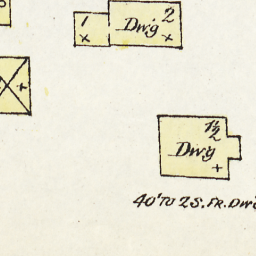 1 Dwg 2
x x
1½
Dwg
x
40' TO 2 S. FR. DWG